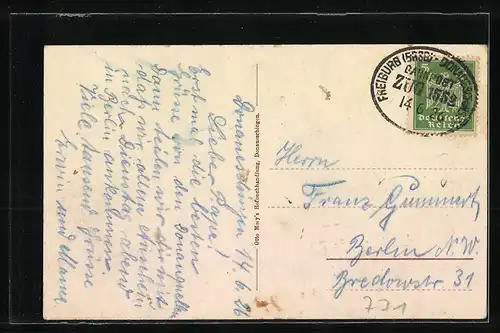 Donaueschingen 14.6.26
Liebe Papa!
Erstmal die besten
Grüsse von den Donauquellen
Dann teilen wir dir mit
daß wir allem Anschein
nach Dienstag abend
in Berlin ankommen
Viele tausend Grüsse
Erwin und Mama
Otto Mory's Hofbuchhandlung, Donaueschingen.
FREIBURG (BRSG)
BAHNPOST
ZUG
14
5
Deutsches
Reich
Herrn
Franz Gummert
Berlin N.W.
Bredowstr. 31
731